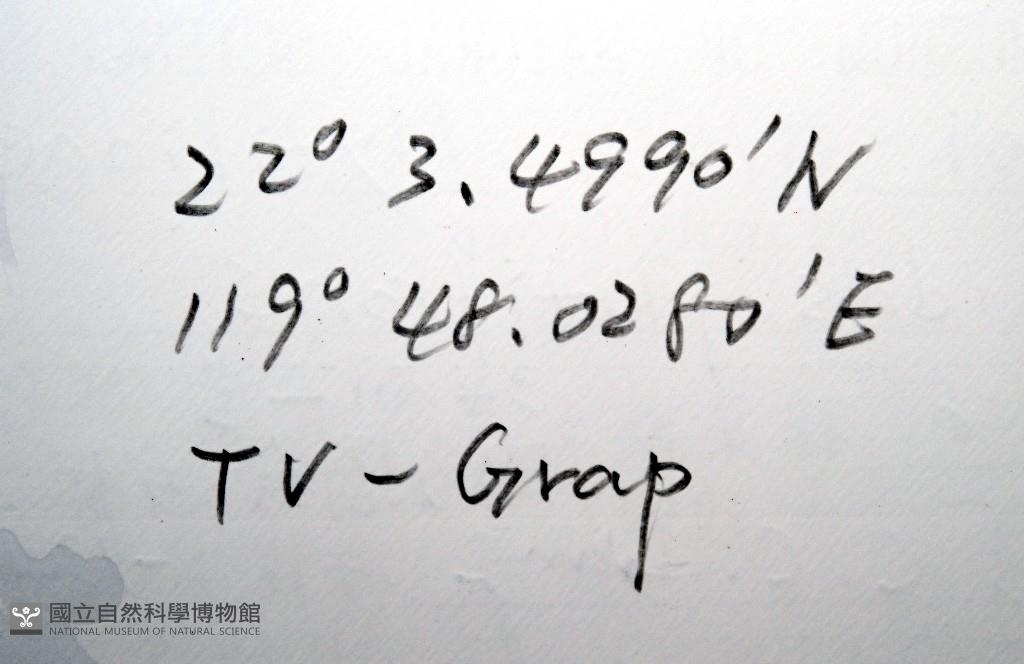 22° 3.4990' N
119° 48.0280' E
TV - Grap
國立自然科學博物館
NATIONAL MUSEUM OF NATURAL SCIENCE